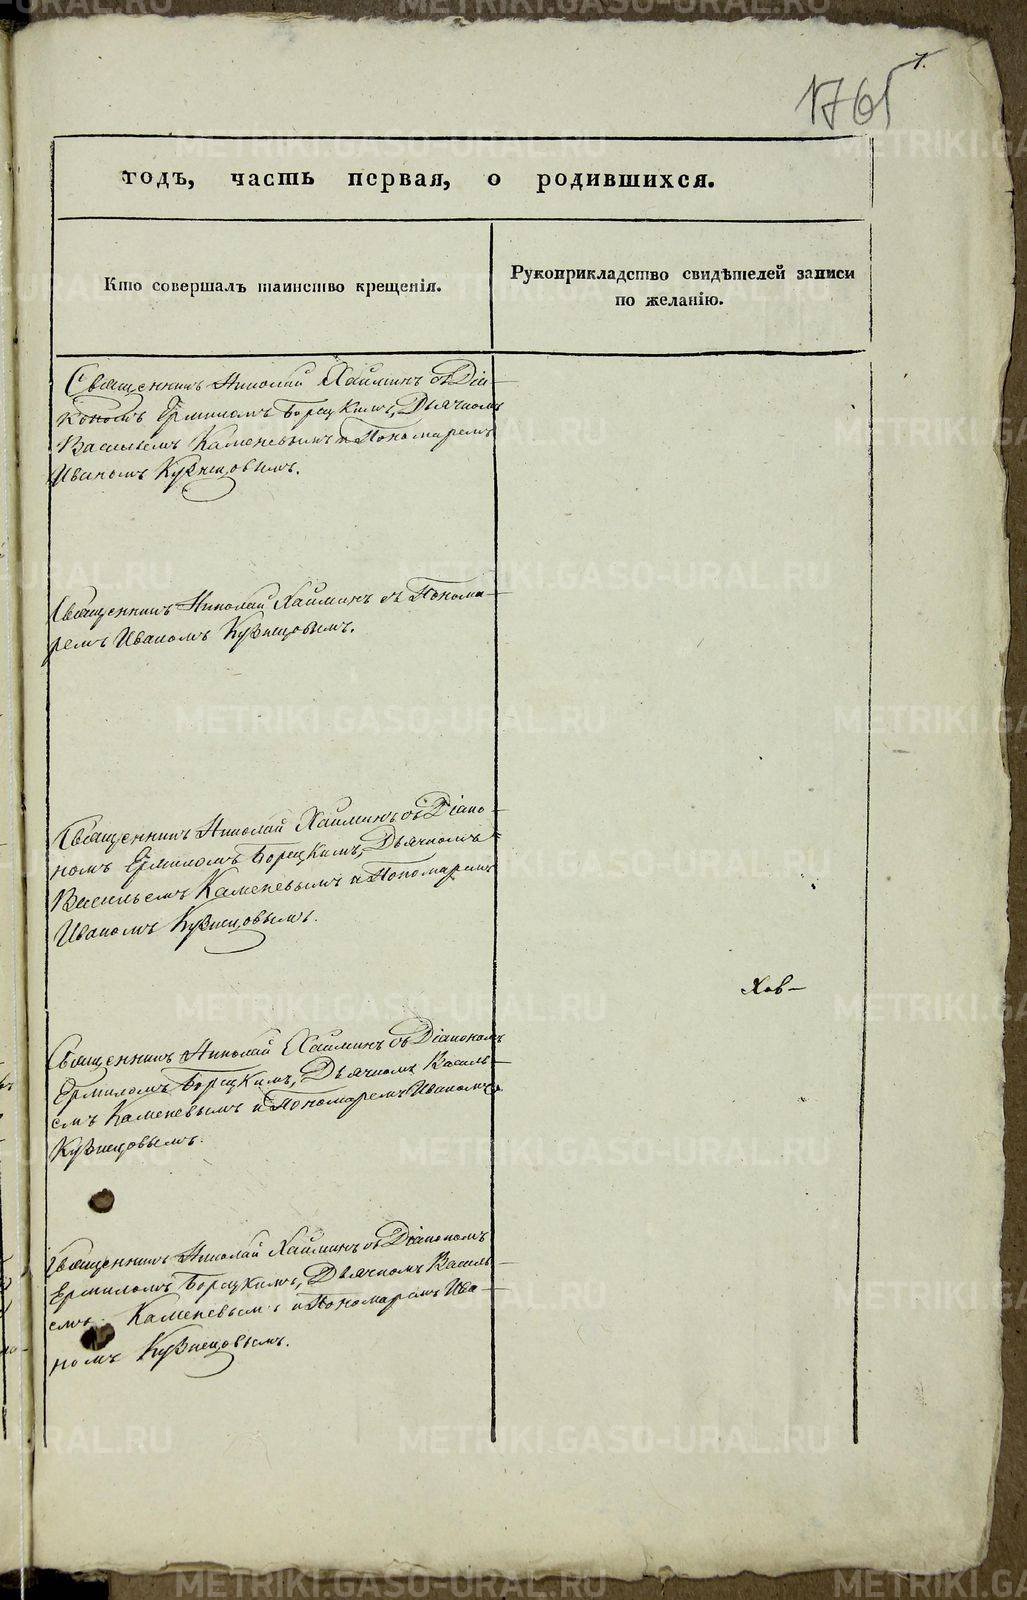 7.
1761
годъ, часть первая, о родившихся.
Кто совершалъ таинство крещенія.
Рукоприкладство свидѣтелей записи
по желанію.
Священникъ Николай Хайминъ съ Діа-
кономъ Ермиломъ Борецкимъ, Дьячкомъ
Васильемъ Каменевымъ и Пономаремъ
Иваномъ Кузнецовымъ.
Священникъ Николай Хайминъ съ Понома-
ремъ Иваномъ Кузнецовымъ.
Священникъ Николай Хайминъ съ Діако-
номъ Ермиломъ Борецкимъ, Дьячкомъ
Васильемъ Каменевымъ и Пономаремъ
Иваномъ Кузнецовымъ.
Хов-
Священникъ Николай Хайминъ съ Діакономъ
Ермиломъ Борецкимъ, Дьячкомъ Василь-
емъ Каменевымъ и Пономаремъ Иваномъ
Кузнецовымъ.
Священникъ Николай Хайминъ съ Діакономъ
Ермиломъ Борецкимъ, Дьячкомъ Василь-
емъ Каменевымъ и Пономаремъ Ива-
номъ Кузнецовымъ.
METRIKI.GASO-URAL.RU